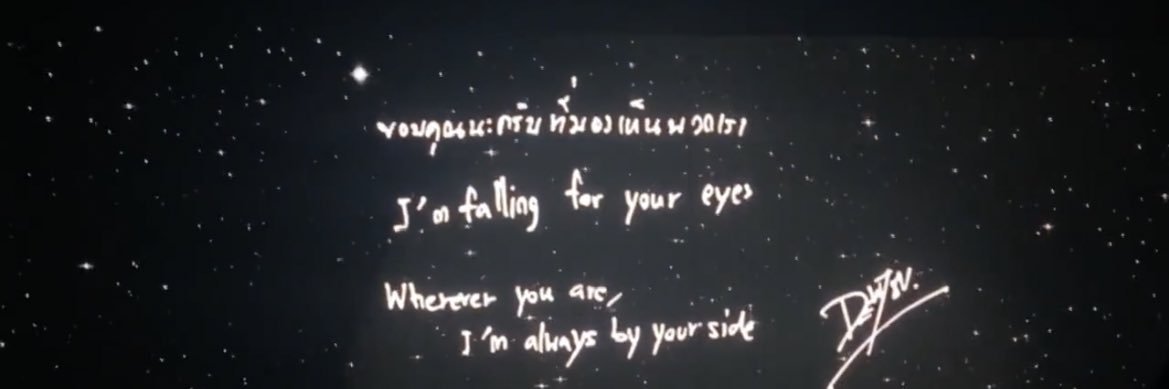 ขอบคุณนะครับ ที่มองเห็นพวกเรา
I'm falling for your eyes
Wherever you are,
I'm always by your side